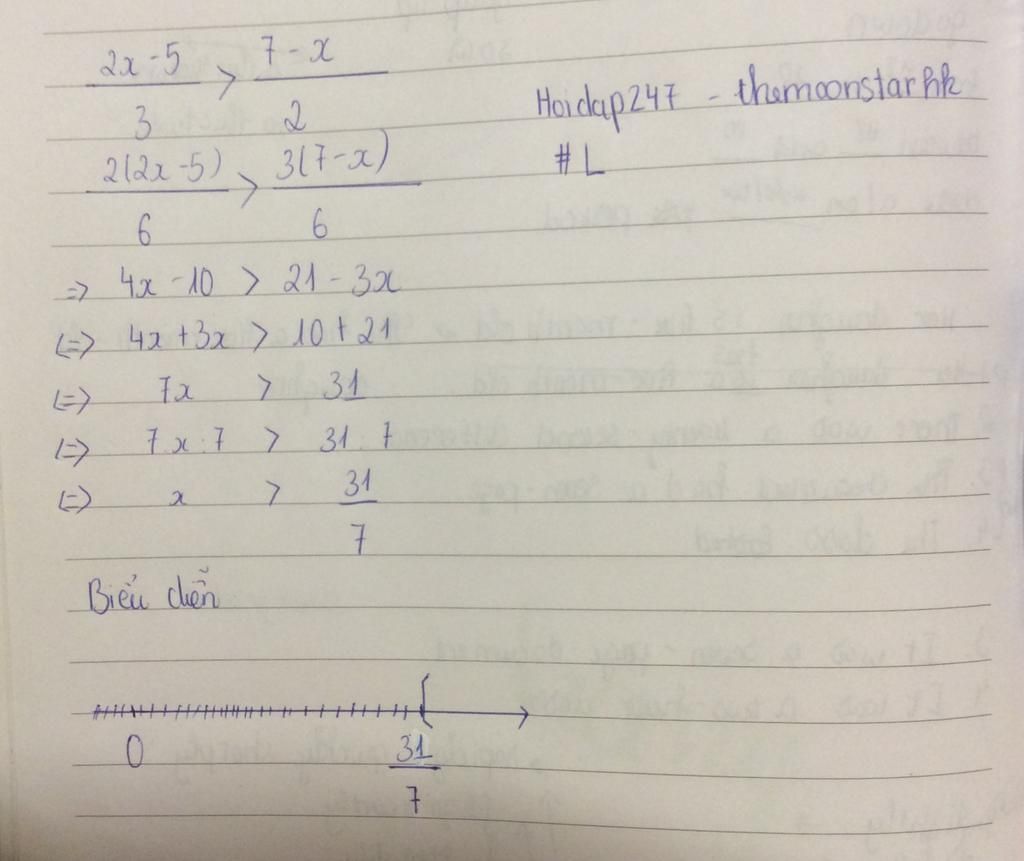 2x-5/3 > 7-x/2
Hoidap247 - themoonstarhk
#L
2(2x-5)/6 > 3(7-x)/6
=> 4x-10 > 21-3x
<=> 4x+3x > 10+21
<=> 7x > 31
<=> 7x:7 > 31:7
<=> x > 31/7
Biểu diễn
0 31/7